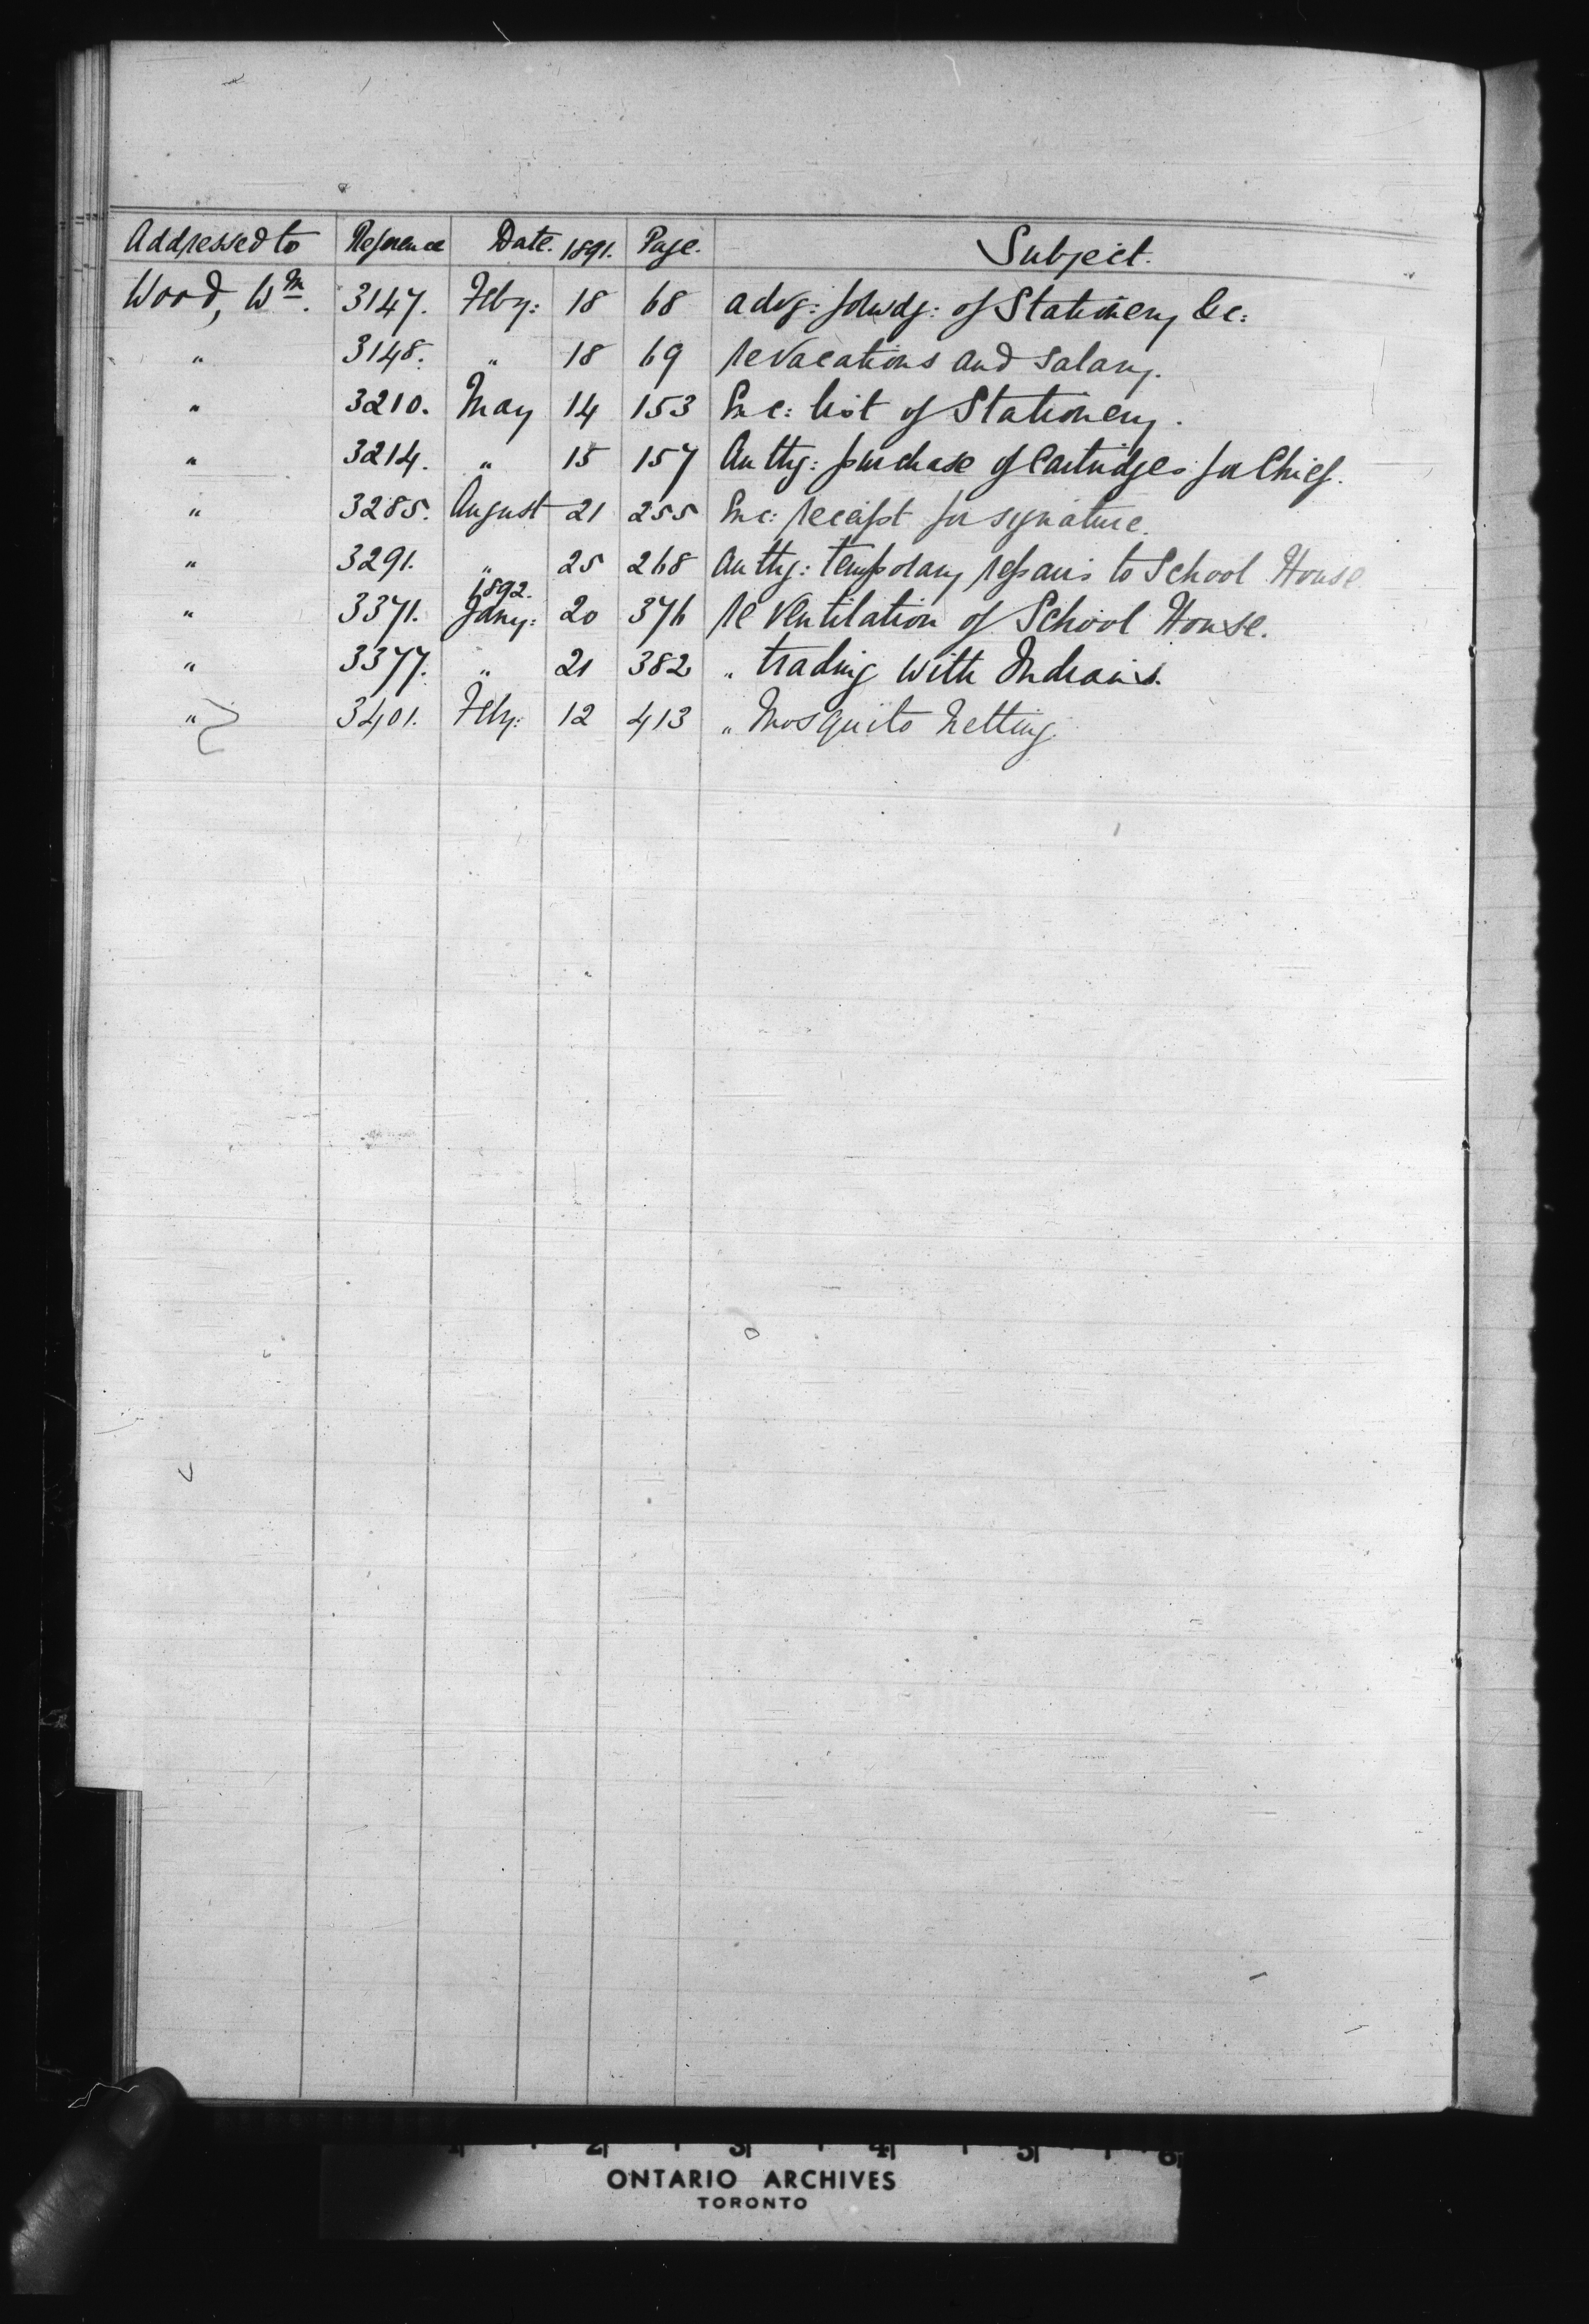 Addressed to Reference Date. 1891. Page. Subject.
Wood, Wm. 3147. Feby: 18 68 advg: forwdg: of Stationery &c:
" 3148. " 18 69 re vacations and salary.
" 3210. May 14 153 Enc: list of Stationery.
" 3214. " 15 157 Authg: purchase of Cartridges for Chief.
" 3285. August 21 255 Enc: receipt for signature.
" 3291. " 25 268 Authg: temporary repairs to School House
1892.
" 3371. Jany: 20 376 re Ventilation of School House.
" 3377. " 21 382 " trading with Indians.
" 3401. Feby: 12 413 " Mosquito Netting.
1 2 3 4 5 6
ONTARIO ARCHIVES
TORONTO